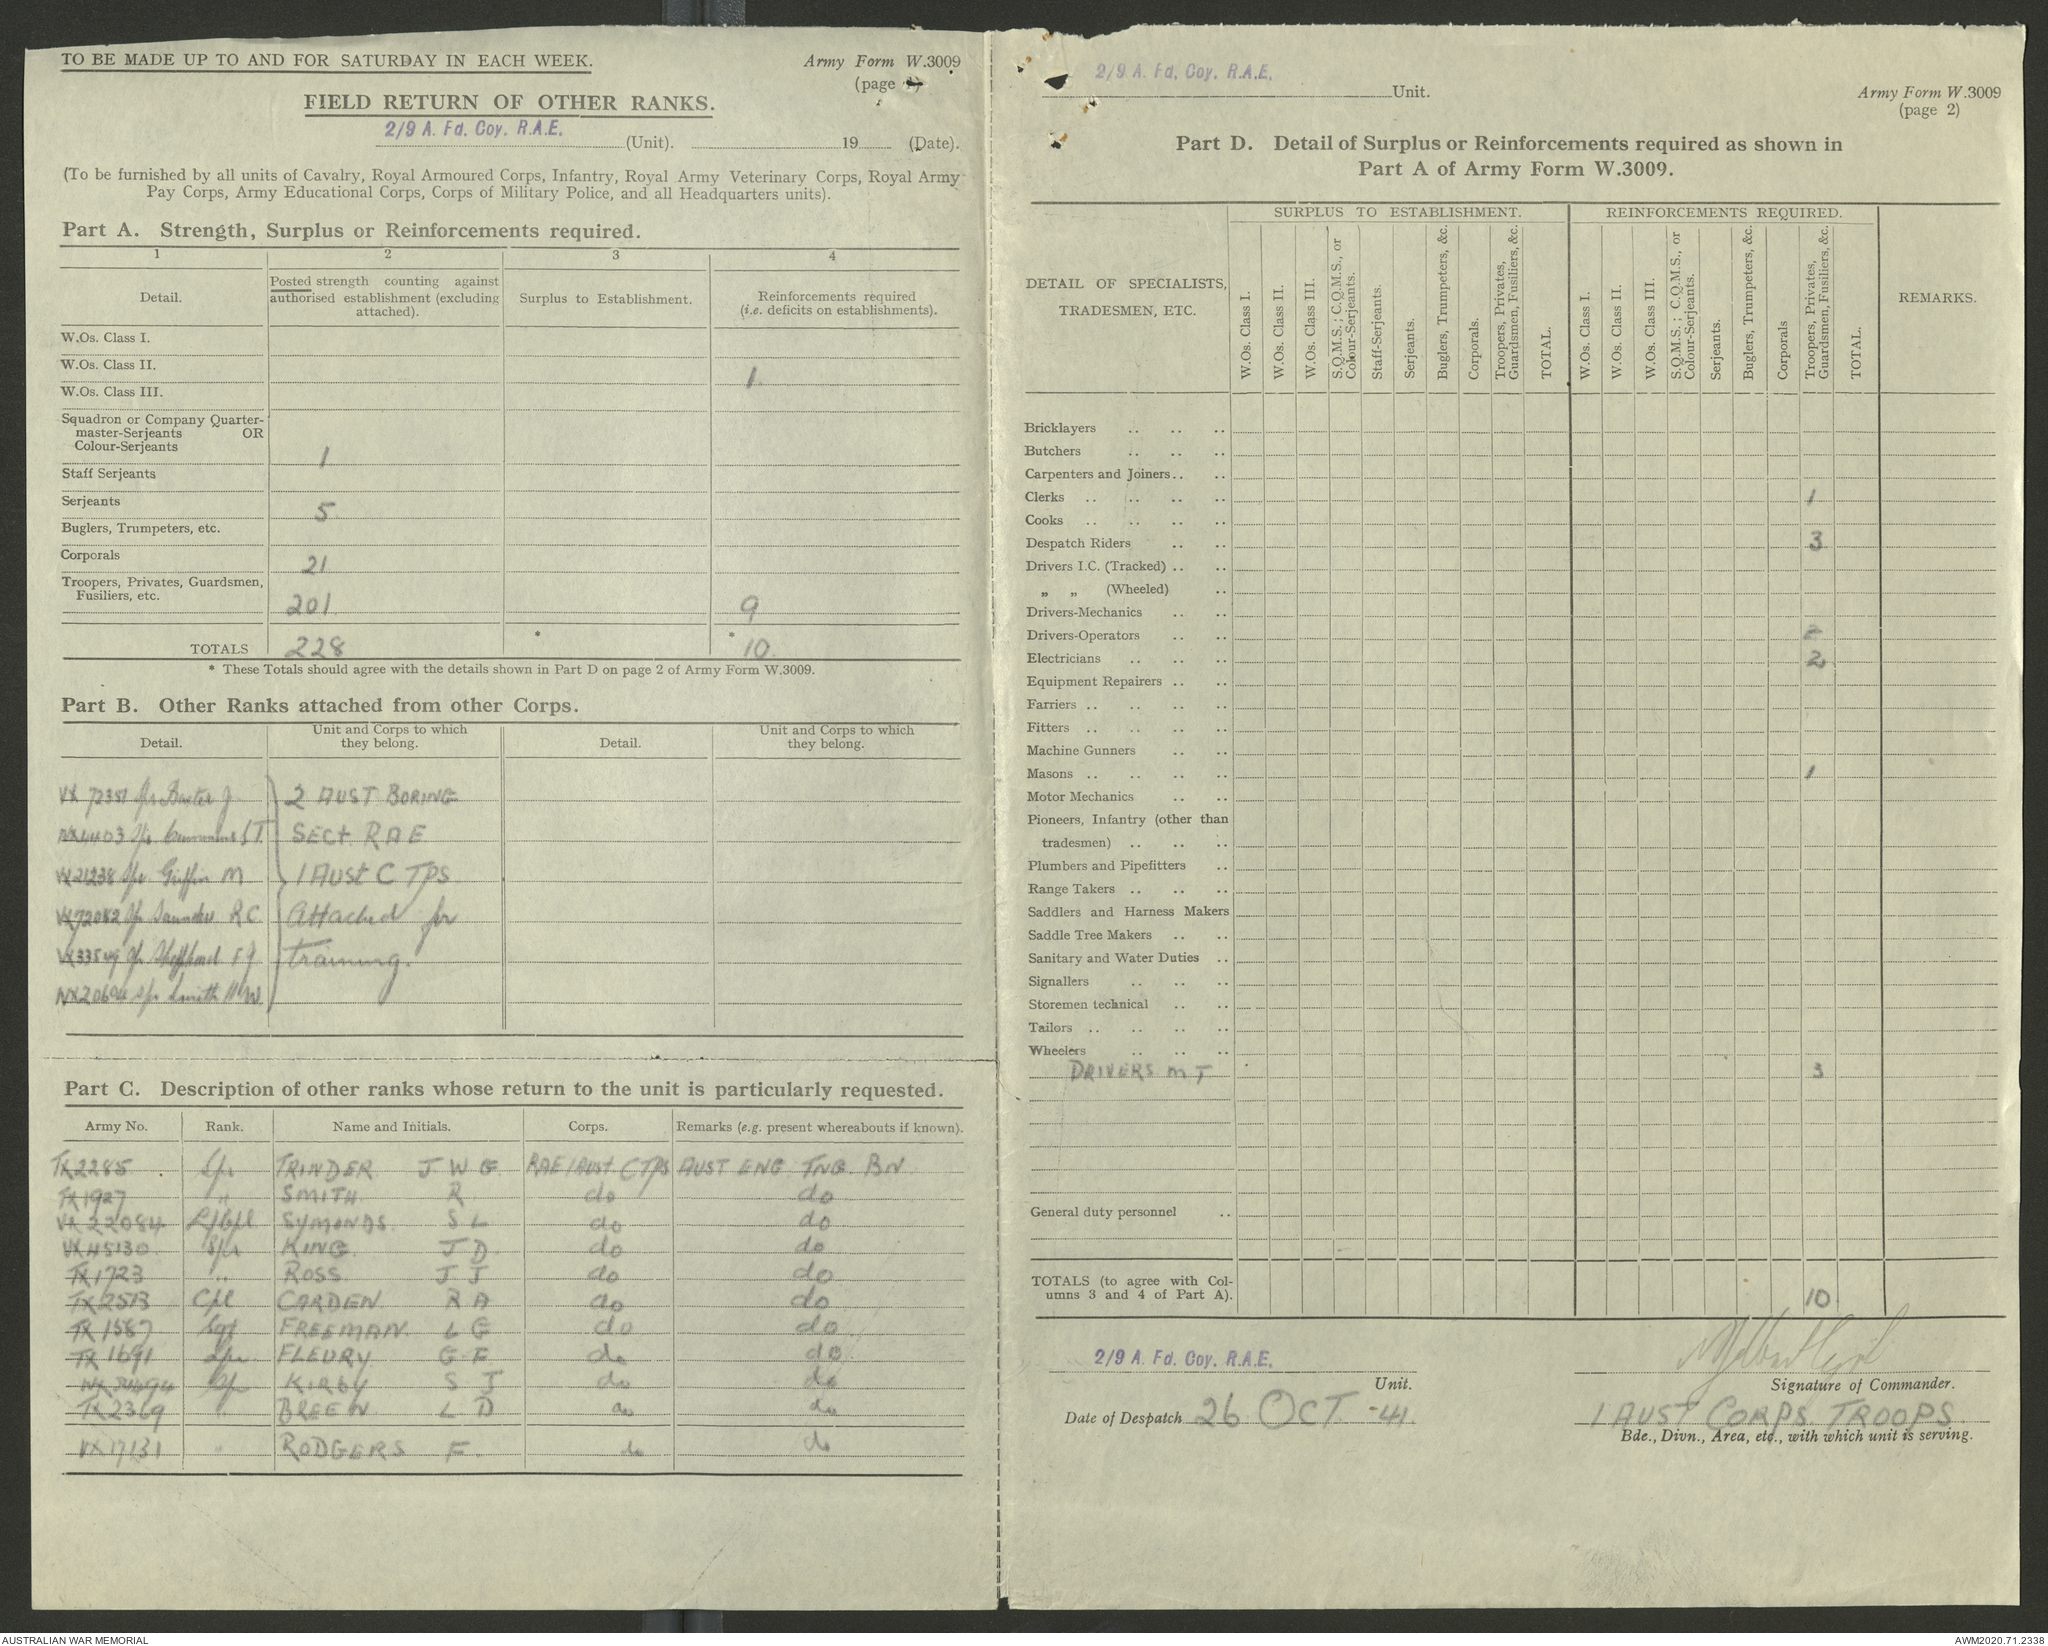 TO BE MADE UP TO AND FOR SATURDAY IN EACH WEEK.
Army Form W.3009
(page 1)
FIELD RETURN OF OTHER RANKS.
2/9 A. Fd. Coy. R.A.E. (Unit). 19 (Date).
(To be furnished by all units of Cavalry, Royal Armoured Corps, Infantry, Royal Army Veterinary Corps, Royal Army
Pay Corps, Army Educational Corps, Corps of Military Police, and all Headquarters units).
Part A. Strength, Surplus or Reinforcements required.
1 2 3 4
Detail.
Posted strength counting against authorised establishment (excluding attached).
Surplus to Establishment.
Reinforcements required (i.e. deficits on establishments).
W.Os. Class I.
W.Os. Class II. 1
W.Os. Class III.
Squadron or Company Quarter-
master-Serjeants OR
Colour-Serjeants 1
Staff Serjeants
Serjeants 5
Buglers, Trumpeters, etc.
Corporals 21
Troopers, Privates, Guardsmen,
Fusiliers, etc. 201 9
TOTALS 228 * * 10
* These Totals should agree with the details shown in Part D on page 2 of Army Form W.3009.
Part B. Other Ranks attached from other Corps.
Detail.
Unit and Corps to which they belong.
Detail.
Unit and Corps to which they belong.
VX 72351 Spr Baxter J 2 AUST BORING
Spr Cummins S T SECT RAE
VX21238 Spr Griffin M 1 AUST C TPS
VX72082 Spr Saunders R C Attached for
VX33549 Spr Shepherd F J Training.
Spr Smith H W.
Part C. Description of other ranks whose return to the unit is particularly requested.
Army No. Rank. Name and Initials. Corps. Remarks (e.g. present whereabouts if known).
TX2285 Spr TRINDER J W G RAE 1 AUST C TPS AUST ENG TNG BN
TX1927 " SMITH R do do
VX22084 L/Cpl SYMONDS S L do do
VX45130 Spr KING J D do do
TX1723 " ROSS J J do do
TX2513 Cpl CARDEN R A do do
TX1587 Sgt FREEMAN L G do do
TX1691 Spr FLEURY G F do do
Spr KIRBY S J do do
TX2369 " BREEN L D do do
VX17131 " RODGERS F. do do
2/9 A. Fd. Coy. R.A.E. Unit.
Army Form W.3009
(page 2)
Part D. Detail of Surplus or Reinforcements required as shown in
Part A of Army Form W.3009.
DETAIL OF SPECIALISTS, TRADESMEN, ETC.
SURPLUS TO ESTABLISHMENT.
W.Os. Class I.
W.Os. Class II.
W.Os. Class III.
S.Q.M.S.; C.Q.M.S., or Colour-Serjeants.
Staff-Serjeants.
Serjeants.
Buglers, Trumpeters, &c.
Corporals.
Troopers, Privates, Guardsmen, Fusiliers, &c.
TOTAL.
REINFORCEMENTS REQUIRED.
W.Os. Class I.
W.Os. Class II.
W.Os. Class III.
S.Q.M.S.; C.Q.M.S., or Colour-Serjeants.
Serjeants.
Buglers, Trumpeters, &c.
Corporals
Troopers, Privates, Guardsmen, Fusiliers, &c.
TOTAL.
REMARKS.
Bricklayers
Butchers
Carpenters and Joiners
Clerks 1
Cooks
Despatch Riders 3
Drivers I.C. (Tracked)
„ „ (Wheeled)
Drivers-Mechanics
Drivers-Operators
Electricians 2
Equipment Repairers
Farriers
Fitters
Machine Gunners
Masons 1
Motor Mechanics
Pioneers, Infantry (other than
tradesmen)
Plumbers and Pipefitters
Range Takers
Saddlers and Harness Makers
Saddle Tree Makers
Sanitary and Water Duties
Signallers
Storemen technical
Tailors
Wheelers
DRIVERS M T 3
General duty personnel
TOTALS (to agree with Col-
umns 3 and 4 of Part A). 10
2/9 A. Fd. Coy. R.A.E.
Unit.
Signature of Commander.
Date of Despatch 26 OCT 41
1 AUST CORPS TROOPS
Bde., Divn., Area, etc., with which unit is serving.
AUSTRALIAN WAR MEMORIAL
AWM2020.71.2338